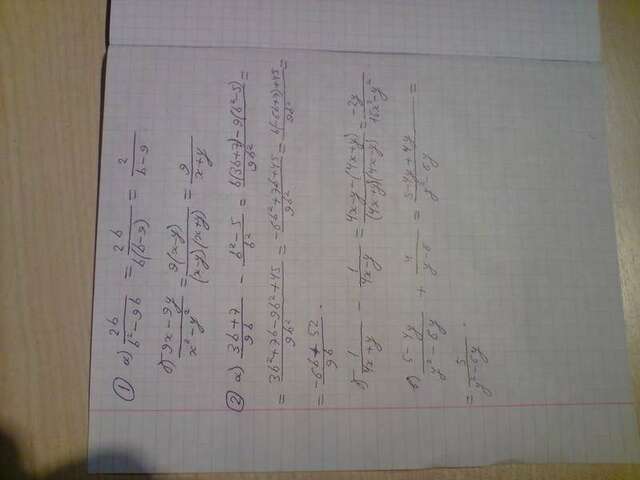 ① а) 2b/(b²-9b) = 2b/(b(b-9)) = 2/(b-9)
б) (9x-9y)/(x²-y²) = 9(x-y)/((x-y)(x+y)) = 9/(x+y)
② а) (3b+7)/(9b) - (b²-5)/b² = (b(3b+7)-9(b²-5))/(9b²) =
= (3b²+7b-9b²+45)/(9b²) = (-6b²+7b+45)/(9b²) = (b(-6b+7)+45)/(9b²) =
= (-6b+52)/(9b).
б) 1/(4x+y) - 1/(4x-y) = (4x-y-(4x+y))/((4x-y)(4x+y)) = -2y/(16x²-y²)
в) (5-4y)/(y²-6y) + 4/(y-6) = (5-4y+4y)/(y²-6y) =
= 5/(y²-6y).